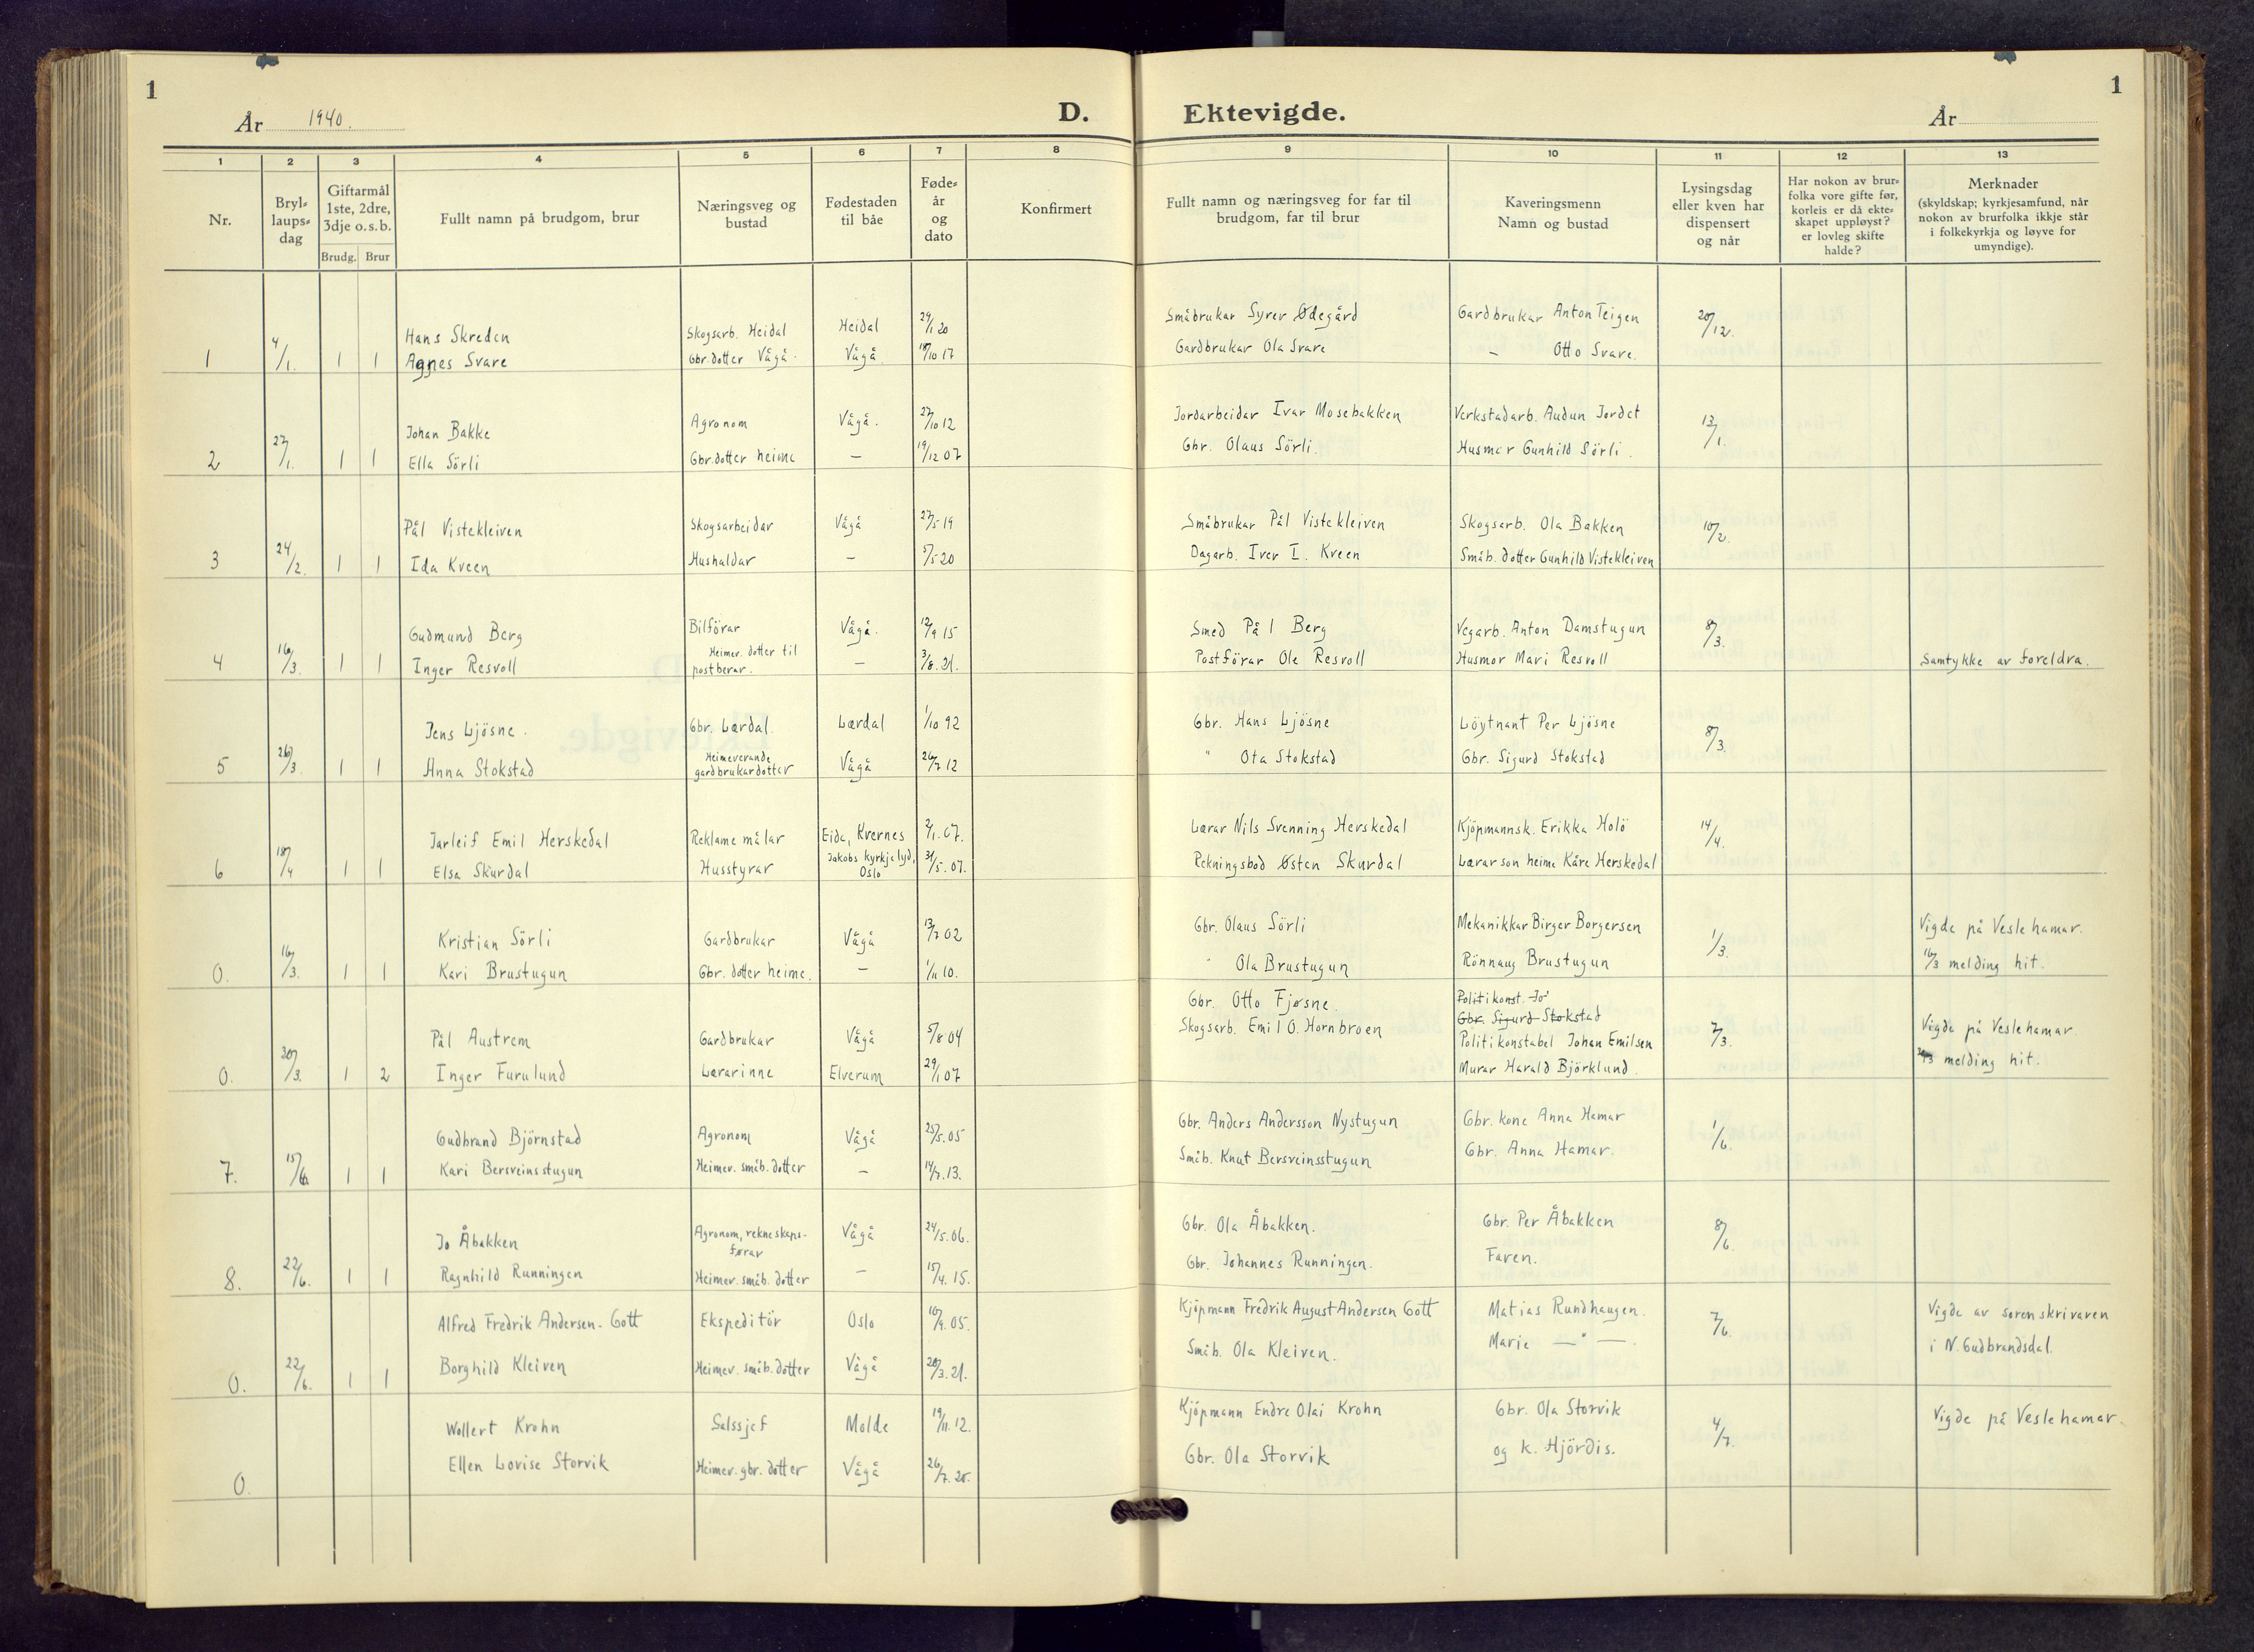 1
År 1940.
D. Ektevigde.
År
1
1 2 3 4 5 6 7 8 9 10 11 12 13
Nr.
Bryl-
laups-
dag
Giftarmål
1ste, 2dre,
3dje o.s.b.
Brudg. Brur
Fullt namn på brudgom, brur
Næringsveg og
bustad
Fødestaden
til båe
Føde-
år
og
dato
Konfirmert
Fullt namn og næringsveg for far til
brudgom, far til brur
Kaveringsmenn
Namn og bustad
Lysingsdag
eller kven har
dispensert
og når
Har nokon av brur-
folka vore gifte før,
korleis er då ekte-
skapet uppløyst?
er lovleg skifte
halde?
Merknader
(skyldskap; kyrkjesamfund, når
nokon av brurfolka ikkje står
i folkekyrkja og løyve for
umyndige).
Hans Skreden Skogsarb. Heidal Heidal 29/1 20 Småbrukar Syver Ødegård Gardbrukar Anton Teigen 20/12.
1 4/1. 1 1 Agnes Svare Gbr.dotter Vågå. Vågå. 18/10 17 Gardbrukar Ola Svare — Otto Svare.
Johan Bakke Agronom Vågå. 27/10 12 Jordarbeidar Ivar Mosebakken Verkstadarb. Audun Jordet 13/1.
2 27/1. 1 1 Ella Sörli Gbr.dotter heime — 19/12 07 Gbr. Olaus Sörli. Husmor Gunhild Sörli.
Pål Vistekleiven Skogsarbeidar Vågå 27/5 19 Småbrukar Pål Vistekleiven Skogsarb. Ola Bakken 10/2.
3 24/2. 1 1 Ida Kveen Hushaldar — 5/5 20 Dagarb. Iver I. Kveen Småb. dotter Gunhild Vistekleiven
Gudmund Berg Bilförar Vågå. 12/9 15 Smed Pål Berg Vegarb. Anton Damstugun 8/3.
4 16/3. 1 1 Inger Resvoll Heimev. dotter til
postberar. — 3/8. 21. Postförar Ole Resvoll Husmor Mari Resvoll Samtykke av foreldra.
Jens Ljösne. Gbr. Lærdal. Lærdal 1/10 92 Gbr. Hans Ljösne Löytnant Per Ljösne 8/3.
5 26/3. 1 1 Anna Stokstad Heimeverande
gardbrukardotter Vågå 26/7 12 " Ola Stokstad Gbr. Sigurd Stokstad
Jarleif Emil Herskedal Reklamemålar Eide, Kvernes 2/1.07. Lærar Nils Svenning Herskedal Kjöpmannsk. Erikka Holö 14/4.
6 18/4 1 1 Elsa Skurdal Husstyrar Jakobs kyrkjelyd,
Oslo 31/5.07. Rekningsbod Østen Skurdal Lærarson heime Kåre Herskedal
Kristian Sörli Gardbrukar Vågå 13/7 02 Gbr. Olaus Sörli Mekanikkar Birger Borgersen 1/3. Vigde på Veslehamar.
0. 16/3. 1 1 Kari Brustugun Gbr. dotter heime. — 1/11 10. " Ola Brustugun Rönnaug Brustugun 16/3 melding hit.
Gbr. Otto Fjøsne. Politikonst. Jo
Gbr. Sigurd Stokstad
Pål Austrem Gardbrukar Vågå 5/8 04 Skogsarb. Emil O. Hornbroen Politikonstabel Johan Emilsen 7/3. Vigde på Veslehamar
0. 30/3. 1 2 Inger Furulund Lærarinne Elverum 29/1 07 Murar Harald Björklund. melding hit.
Gudbrand Björnstad Agronom Vågå 25/5.05 Gbr. Anders Andersson Nystugun Gbr. kone Anna Hamar 1/6.
7. 15/6. 1 1 Kari Bersveinsstugun Heimev. småb. dotter — 14/7.13. Småb. Knut Bersveinsstugun Gbr. Anna Hamar.
Jo Åbakken Agronom, rekneskaps-
førar Vågå 24/5.06. Gbr. Ola Åbakken. Gbr. Per Åbakken 8/6.
8. 22/6. 1 1 Ragnhild Runningen Heimev. småb. dotter — 15/4. 15. Gbr. Johannes Runningen. Faren.
Alfred Fredrik Andersen-Gott Ekspeditör Oslo 16/9.05. Kjöpmann Fredrik August Andersen Gott Matias Rundhaugen. 7/6. Vigde av sorenskrivaren
0. 22/6. 1 1 Borghild Kleiven Heimev. småb. dotter Vågå 28/3.21. Småb. Ola Kleiven. Marie — " — . i N. Gudbrandsdal.
Wollert Krohn Salssjef Molde 19/11.12. Kjöpmann Endre Olai Krohn Gbr. Ola Storvik 4/7. Vigde på Veslehamar.
0. Ellen Lovise Storvik Heimev. gbr. dotter Vågå 26/7.20. Gbr. Ola Storvik og k. Hjördis.